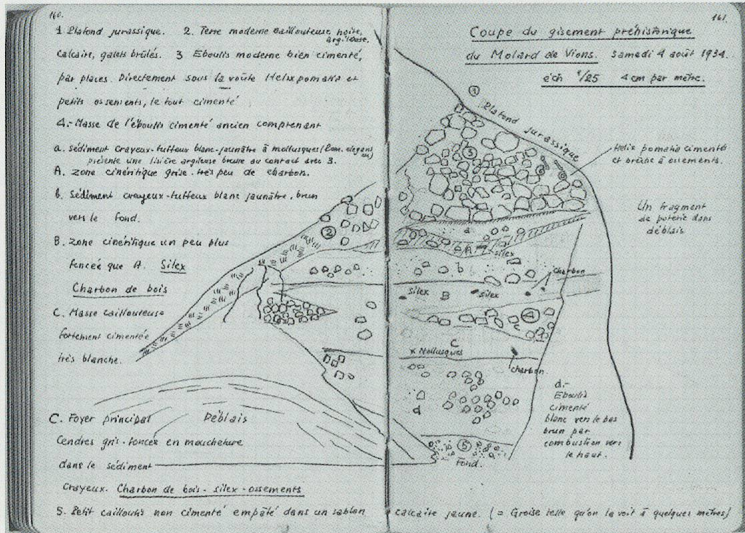 160.
1. Plafond jurassique. 2. Terre moderne caillouteuse noire, argileuse.
calcaire, galets brûlés. 3 Eboulis moderne bien cimenté,
par places. Directement sous la voûte Helix pomatia et
petits ossements, le tout cimenté
4.- Masse de l'éboulis cimenté ancien comprenant
a. sédiment crayeux-tuffeux blanc-jaunâtre à mollusques
présente une lisière argileuse brune au contact avec 3.
A. zone cinéritique grise. très peu de charbon.
b. sédiment crayeux-tuffeux blanc jaunâtre, brun
vers le fond.
B. zone cinéritique un peu plus
foncée que A. Silex
Charbon de bois
C. Masse caillouteuse
fortement cimentée
très blanche.
C. Foyer principal
Cendres gris-foncées en moucheture
dans le sédiment
crayeux. Charbon de bois - silex - ossements
5. Petit cailloutis non cimenté empâté dans un sablon
Déblais
2
161.
Coupe du gisement préhistorique
du Molard de Vions. Samedi 4 août 1934.
éch 1/25 4 cm par mètre.
1
Plafond jurassique
3
Helix pomatia cimentés
et brèche à ossements.
Un fragment
de poterie dans
déblais
a
A
silex
b
charbon
silex
B
silex
4
C
x Mollusques
charbon
d
d.-
Eboulis
cimenté
blanc vers le bas
brun par
combustion vers
le haut.
5
Fond.
calcaire jaune. (= Groise telle qu'on la voit à quelques mètres)